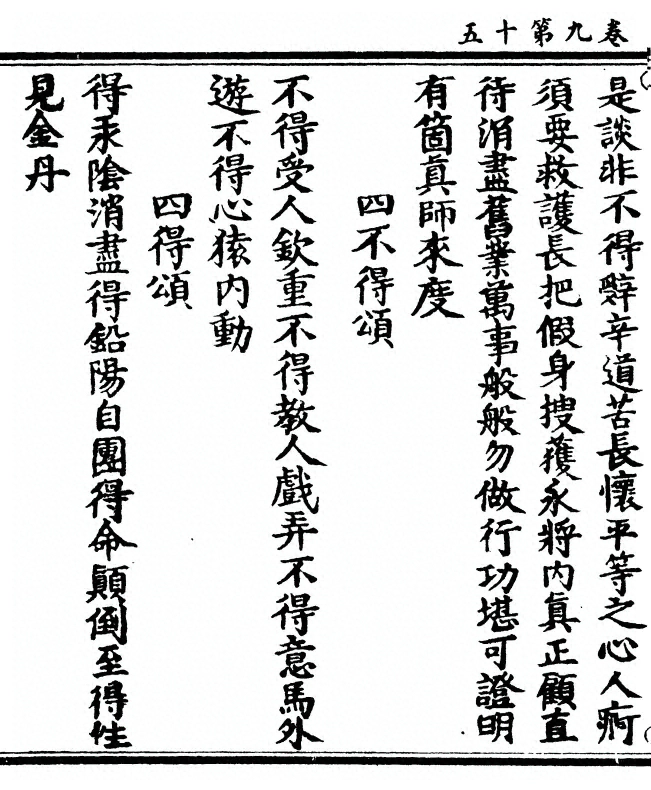 卷九第十五
是談非不得辭辛道苦長懷平等之心人痾
須要救護長把假身搜獲永將內眞正顧直
待涓盡舊業萬事般般勿做行功堪可證明
有箇眞師來度
四不得頌
不得受人欽重不得教人戲弄不得意馬外
遊不得心猿内動
四得頌
得汞陰消盡得鉛陽自團得命顚倒至得性
見金丹